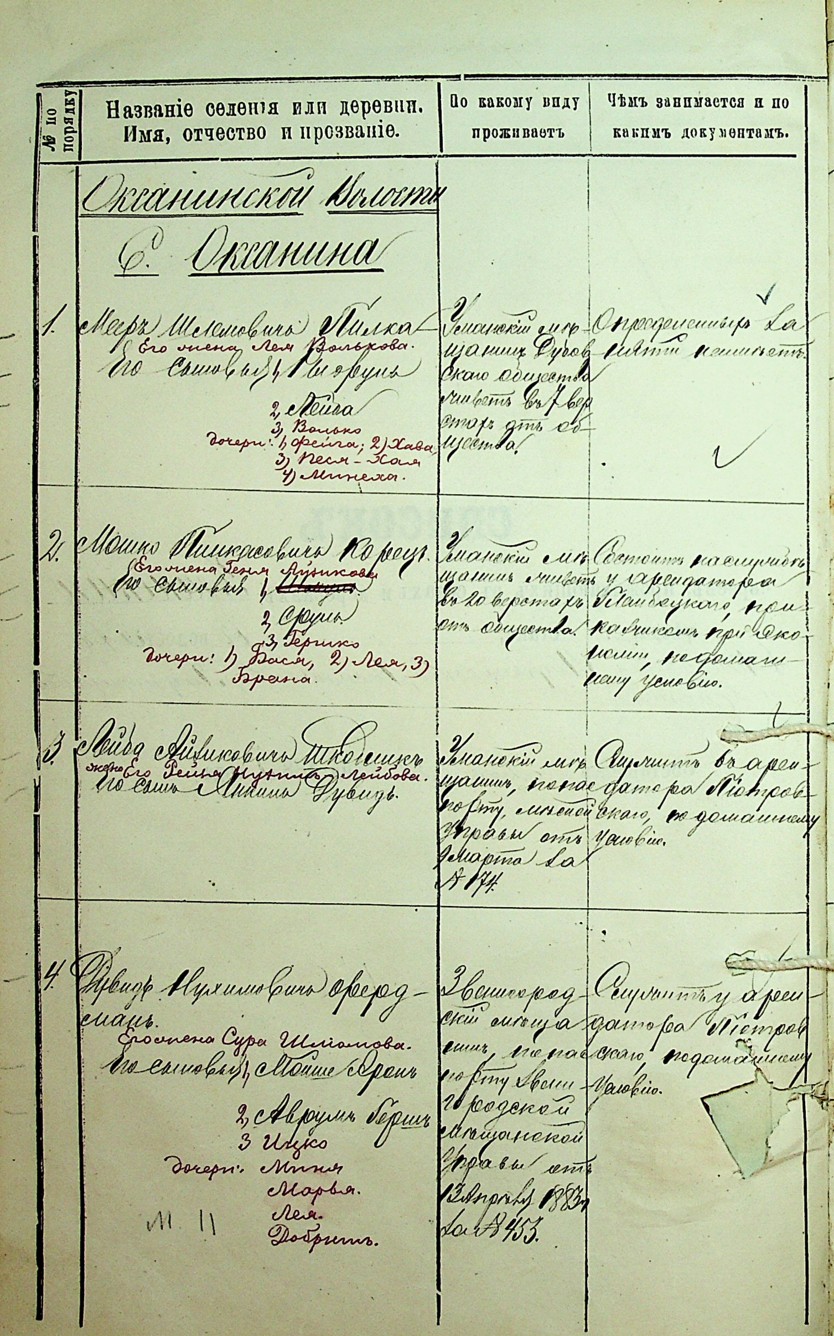 № по порядку
Названіе селенія или деревни.
Имя, отчество и прозваніе.
По какому виду
проживаетъ
Чѣмъ занимается и по
какимъ документамъ.
Оксанинской Волости
С. Оксанина
1.
Меръ Шлемовичъ Пилка
Его жена Лея Волькова.
Его сыновья 1,
2, Лейба
3, Волько
дочери: 1) Фейга; 2) Хава
3) Песя-Хая
4)
Уманскій мѣ-
щанинъ Дубов-
скаго общества
живетъ въ 7 вер
стахъ отъ об-
щества.
Опредѣленныхъ за
нятій неимѣетъ
2.
Мошко Пинкасовичъ Корецъ.
Его жена Геня
Его сыновья 1,
2, Сруль
3, Гершко
дочери: 1) Бася, 2) Лея, 3)
Брана.
Уманскій мѣ
щанинъ живетъ
въ 20 верстахъ
отъ общества.
Состоитъ на службѣ
у арендатора
при-
казчикомъ при эко-
номіи, по домаш-
нему условію.
3.
Лейба Айзиковичъ
жена Его Лейбова.
Его сынъ Дувидъ.
Уманскій мѣ
щанинъ, по пас
порту, мѣской
Управы отъ
9 Марта за
№ 174.
Служитъ въ арен-
датора Піотров-
скаго, по домашнему
условію.
4.
Дувидъ Нухимовичъ Ферд-
манъ.
Его жена Сура Шліомова.
Его сыновья 1, Мойше Аронъ
2, Аврумъ Гершъ
3 Ицко
дочери: Миня
Марья.
Лея.
Добришъ.
М. 11
Звенигород-
скій мѣща
нинъ, по пас
порту Звени-
городской
мѣщанской
Управы отъ
13 Апрѣля 1883 г.
за № 453.
Служитъ у арен-
датора Піотров
скаго, по домашнему
условію.